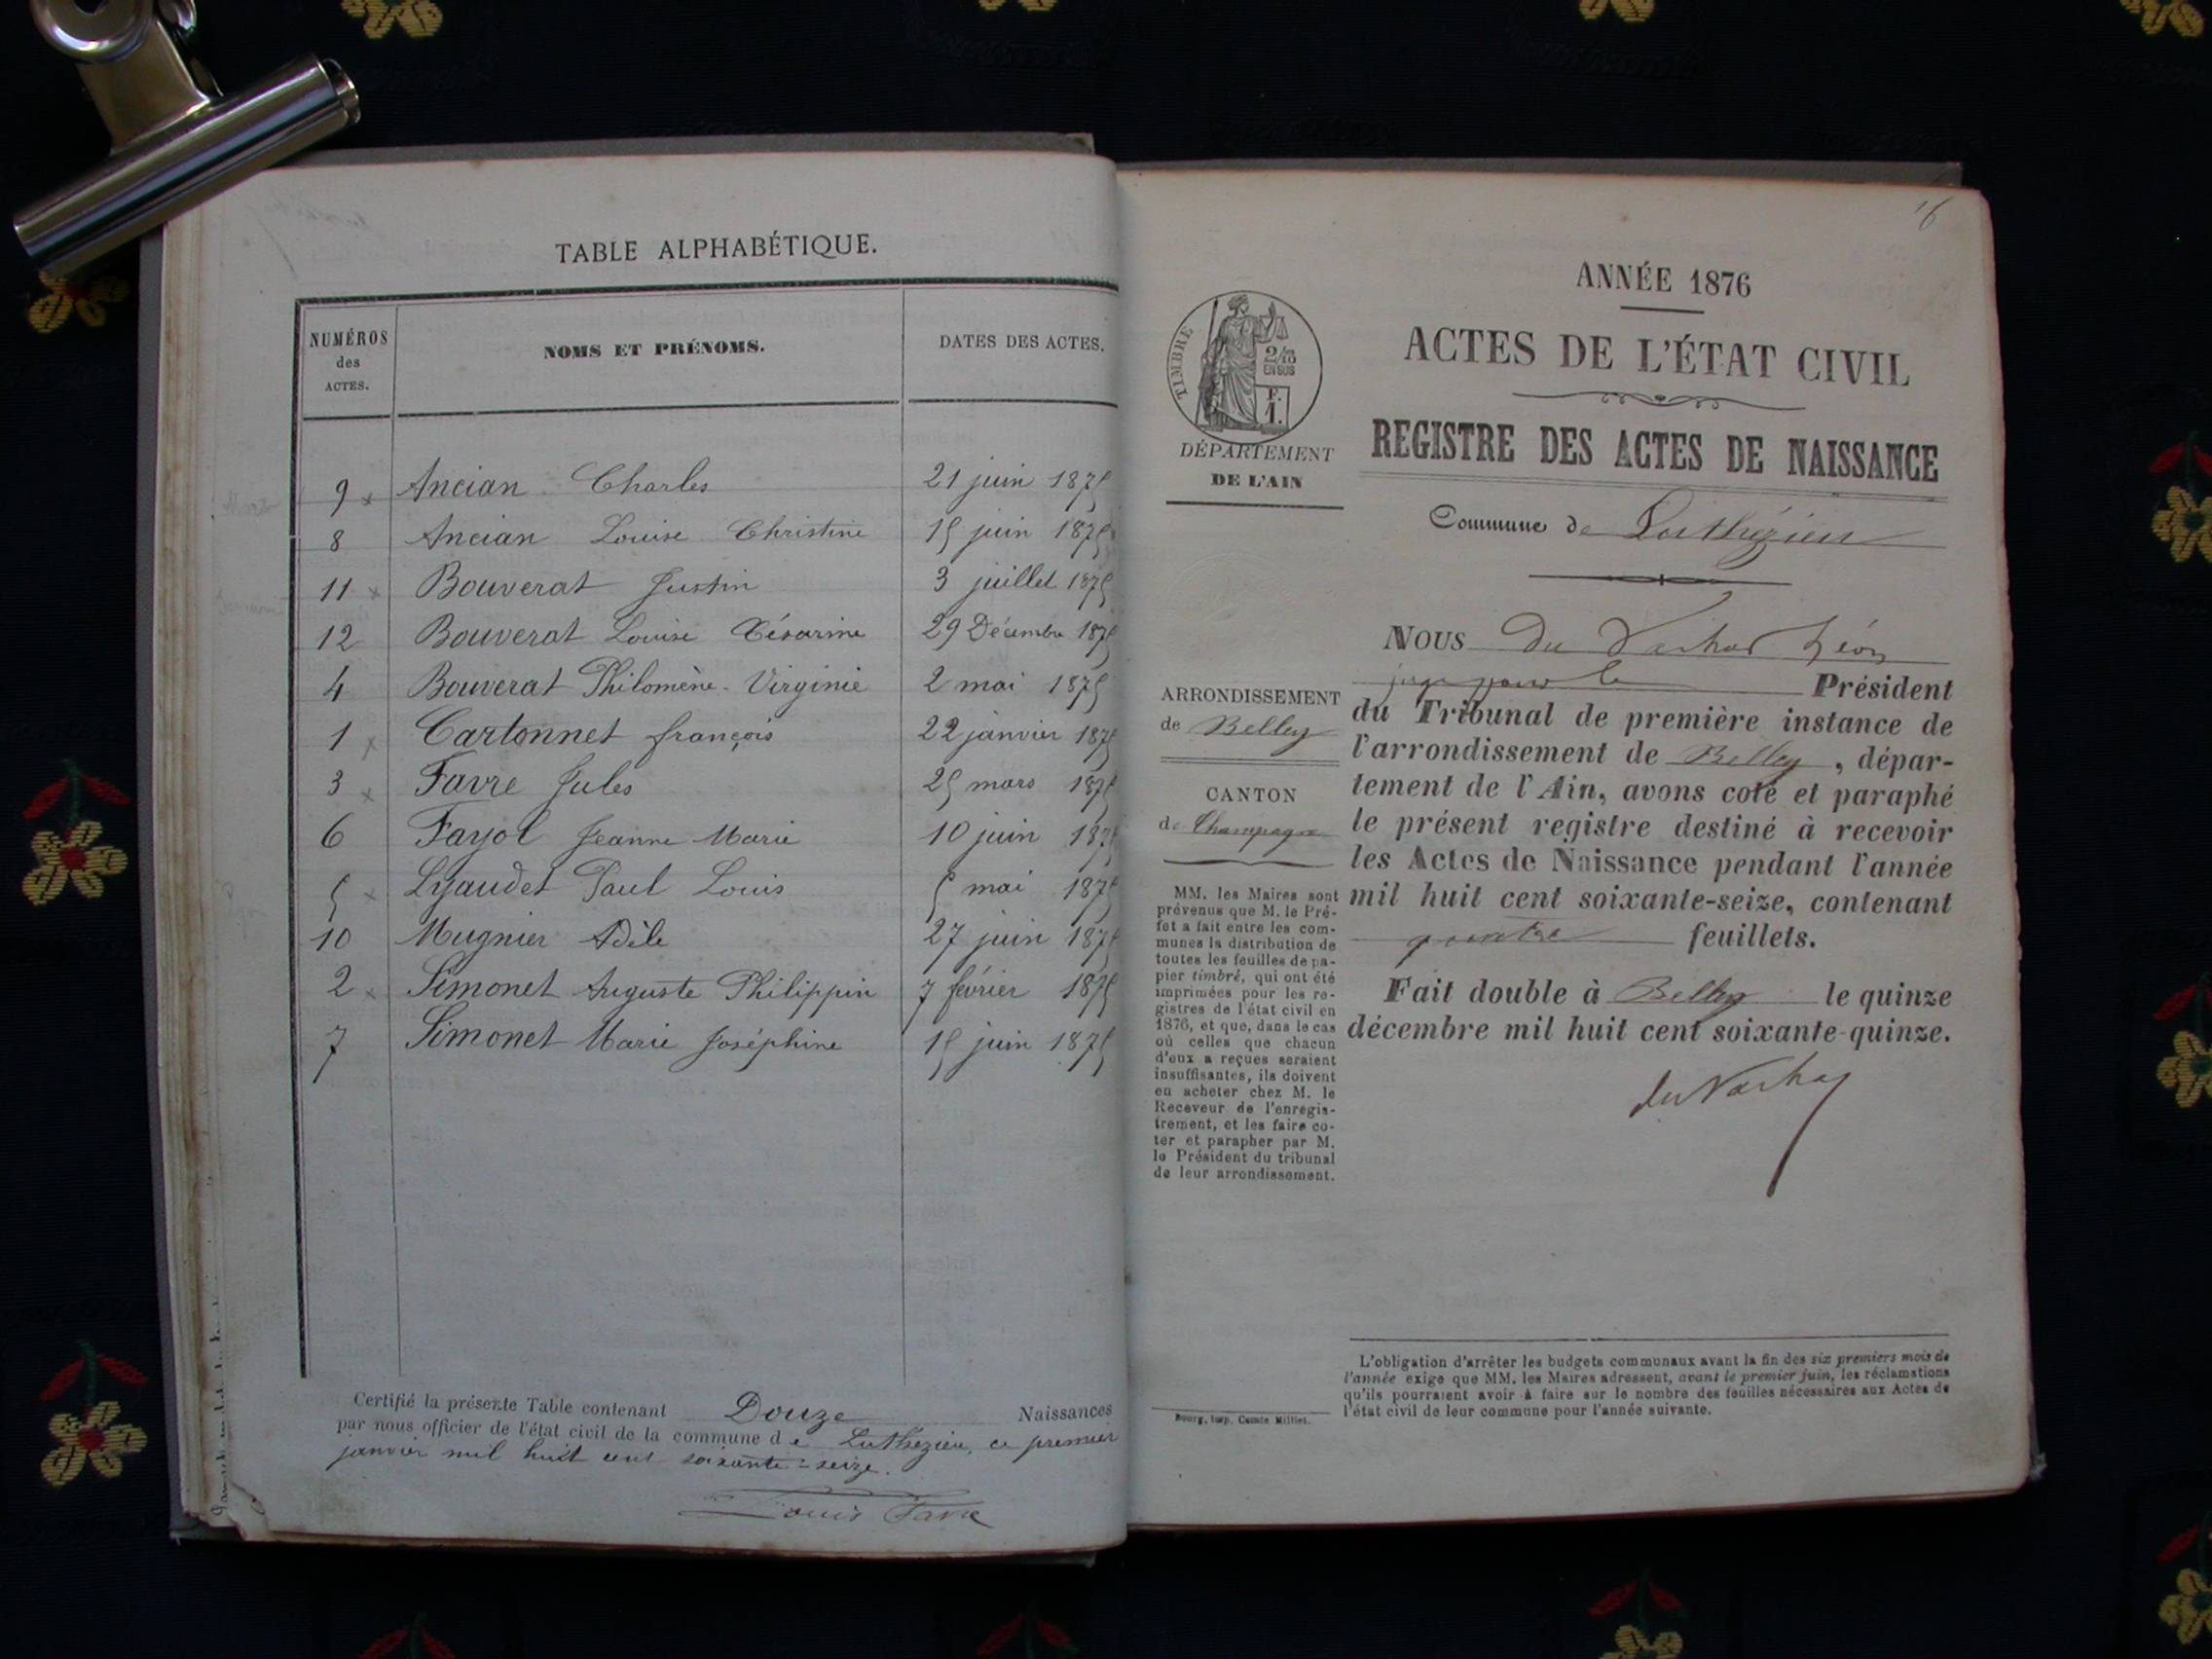 TABLE ALPHABÉTIQUE.
NUMÉROS
des
ACTES.
NOMS ET PRÉNOMS.
DATES DES ACTES.
9 x Ancian Charles 21 juin 1875
8 Ancian Louise Christine 15 juin 1875
11 x Bouverat Justin 3 juillet 1875
12 Bouverat Louise Césarine 29 Décembre 1875
4 Bouverat Philomène-Virginie 2 mai 1875
1 x Cartonnet françois 22 janvier 1875
3 x Favre Jules 25 mars 1875
6 Fayol Jeanne Marie 10 juin 1875
5 x Lyaudet Paul Louis 5 mai 1875
10 Mugnier Adèle 27 juin 1875
2 x Simonet Auguste Philippin 7 février 1875
7 Simonet Marie Joséphine 15 juin 1875
Certifié la présente Table contenant Douze Naissances
par nous officier de l'état civil de la commune de Luthezieu, ce premier
janvier mil huit cent soixante-seize.
Louis Favre
16
ANNÉE 1876
ACTES DE L'ÉTAT CIVIL
REGISTRE DES ACTES DE NAISSANCE
Commune de Luthézieu
TIMBRE
2/10
EN SUS
F.
1.
DÉPARTEMENT
DE L'AIN
ARRONDISSEMENT
de Belley
CANTON
de Champagne
MM. les Maires sont
prévenus que M. le Pré-
fet a fait entre les com-
munes la distribution de
toutes les feuilles de pa-
pier timbré, qui ont été
imprimées pour les re-
gistres de l'état civil en
1876, et que, dans le cas
où celles que chacun
d'eux a reçues seraient
insuffisantes, ils doivent
en acheter chez M. le
Receveur de l'enregis-
trement, et les faire co-
ter et parapher par M.
le Président du tribunal
de leur arrondissement.
Bourg, imp. Comte Milliet.
NOUS Du Léon
juge pour le Président
du Tribunal de première instance de
l'arrondissement de Belley, dépar-
tement de l'Ain, avons coté et paraphé
le présent registre destiné à recevoir
les Actes de Naissance pendant l'année
mil huit cent soixante-seize, contenant
quatre feuillets.
Fait double à Belley le quinze
décembre mil huit cent soixante-quinze.
L'obligation d'arrêter les budgets communaux avant la fin des six premiers mois de
l'année exige que MM. les Maires adressent, avant le premier juin, les réclamations
qu'ils pourraient avoir à faire sur le nombre des feuilles nécessaires aux Actes de
l'état civil de leur commune pour l'année suivante.